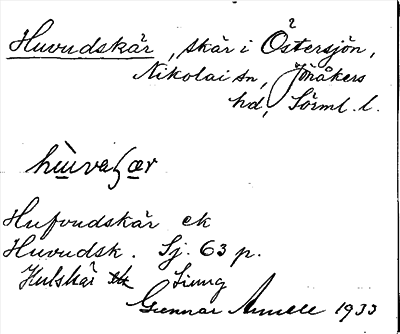 Huvudskär, skär i Östersjön,
Nikolai sn, Jönåkers
hd, Sörml. l.
Hufvudskär ek
Huvudsk. Sj. 63 p.
Hulskär Ljung
Gunnar Annell 1933